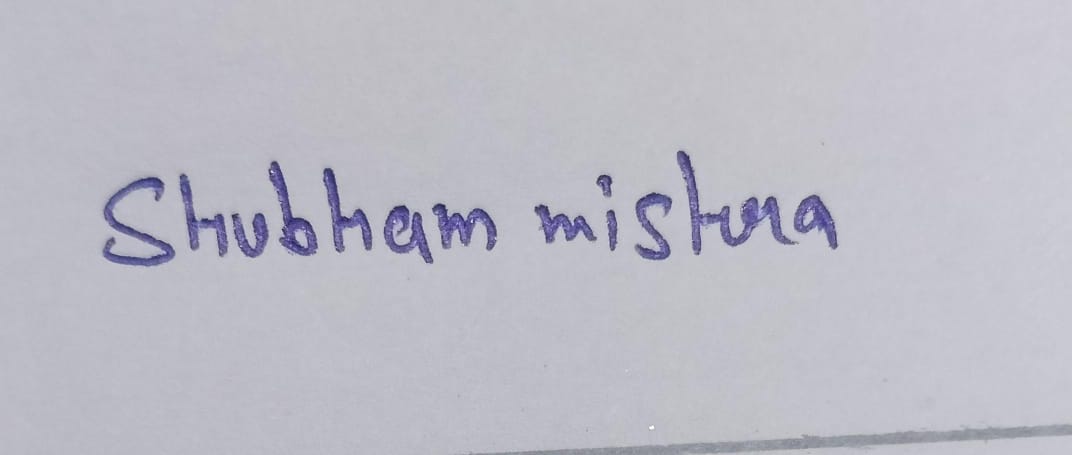 Shubham mishra